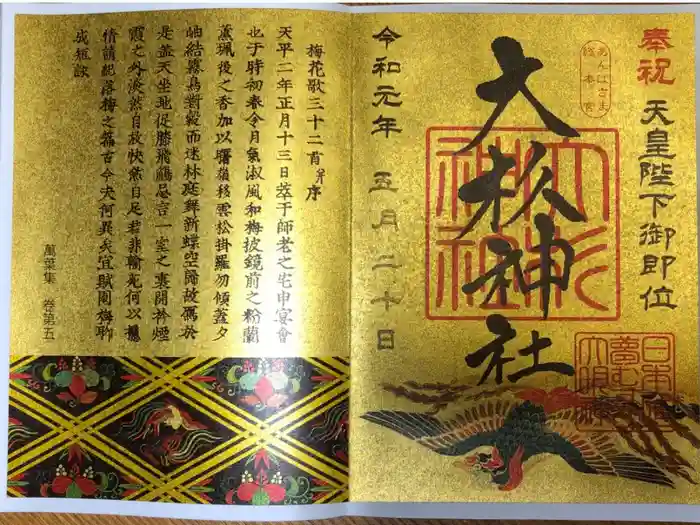 奉祝 天皇陛下御即位
あんばさま
総本宮
大杉神社
大杉神社
夢むすび
大明神
令和元年 五月二十日
梅花歌三十二首 并序
天平二年正月十三日萃于師老之宅申宴會
也于時初春令月氣淑風和梅披鏡前之粉蘭
薫珮後之香加以曙嶺移雲松掛羅而傾蓋夕
岫結霧鳥封縠而迷林庭舞新蝶空歸故鴈於
是蓋天坐地促膝飛觴忘言一室之裏開衿煙
霞之外淡然自放快然自足若非翰苑何以攄
情請紀落梅之篇古今夫何異矣宜賦園梅聊
成短詠
萬葉集 巻第五